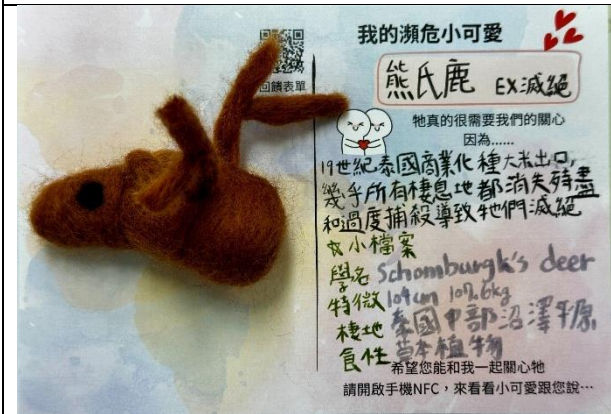 我的瀕危小可愛
回饋表單
熊氏鹿 EX滅絕
牠真的很需要我們的關心
因為......
19世紀泰國商業化種大米出口,
幾乎所有棲息地都消失殆盡
和過度捕殺導致牠們滅絕
小檔案
學名 Schomburgk's deer
特徵 104cm 107.6kg
棲地 泰國中部沼澤平原
食性 草本植物
希望您能和我一起關心牠
請開啟手機NFC，來看看小可愛跟您說…